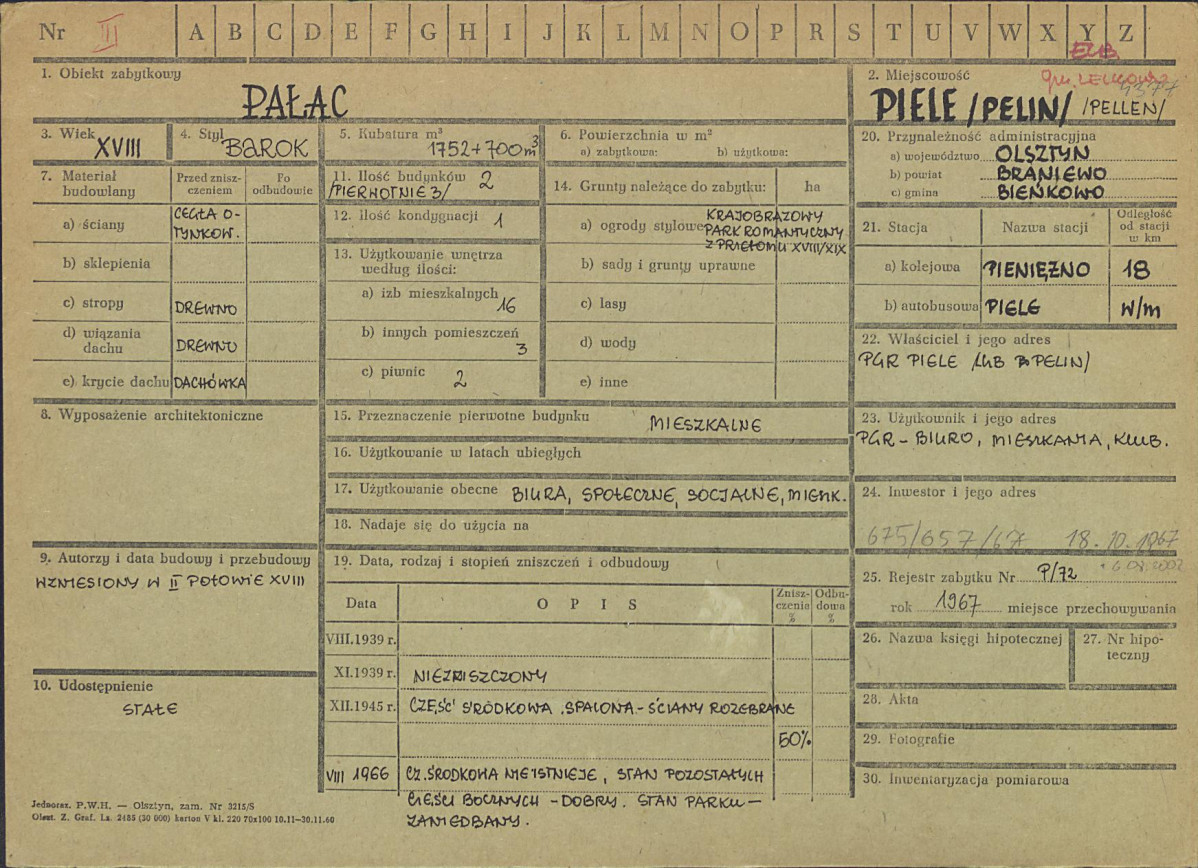 Nr III A B C D E F G H I J K L M N O P R S T U V W X Y Z
ELB.
gm. LELKOWO
4377
1. Obiekt zabytkowy
PAŁAC
2. Miejscowość
PIELE /PELIN/ /PELLEN/
3. Wiek
XVIII
4. Styl
BAROK
5. Kubatura m³
1752+700m³
6. Powierzchnia w m²
a) zabytkowa: b) użytkowa:
7. Materiał budowlany
Przed znisz-
czeniem
Po
odbudowie
a) ściany
CEGŁA O-
TYNKOW.
b) sklepienia
c) stropy DREWNO
d) wiązania
dachu DREWNO
e) krycie dachu DACHÓWKA
8. Wyposażenie architektoniczne
9. Autorzy i data budowy i przebudowy
WZNIESIONY W II POŁOWIE XVIII
10. Udostępnienie
STAŁE
11. Ilość budynków 2
/PIERWOTNIE 3/
12. ilość kondygnacji 1
13. Użytkowanie wnętrza
według ilości:
a) izb mieszkalnych
16
b) innych pomieszczeń
3
c) piwnic 2
14. Grunty należące do zabytku: ha
a) ogrody stylowe KRAJOBRAZOWY
PARK ROMANTYCZNY
Z PRZEŁOMU XVIII/XIX
b) sady i grunty uprawne
c) lasy
d) wody
e) inne
15. Przeznaczenie pierwotne budynku MIESZKALNE
16. Użytkowanie w latach ubiegłych
17. Użytkowanie obecne BIURA, SPOŁECZNE, SOCJALNE, MIESZK.
18. Nadaje się do użycia na
19. Data, rodzaj i stopień zniszczeń i odbudowy
Data O P I S Znisz-
czenia
% Odbu-
dowa
%
VIII.1939 r.
XI.1939 r. NIEZNISZCZONY
XII.1945 r. CZĘŚĆ ŚRÓDKOWA SPALONA - ŚCIANY ROZEBRANE
50%
VIII 1966 CZ. ŚRODKOWA NIE ISTNIEJE, STAN POZOSTAŁYCH
CZĘŚCI BOCZNYCH - DOBRY. STAN PARKU -
ZANIEDBANY.
20. Przynależność administracyjna
a) województwo OLSZTYN
b) powiat BRANIEWO
c) gmina BIEŃKOWO
21. Stacja Nazwa stacji Odległość
od stacji
w km
a) kolejowa PIENIĘŻNO 18
b) autobusowa PIELE W/m
22. Właściciel i jego adres
PGR PIELE /LUB PELIN/
23. Użytkownik i jego adres
PGR - BIURO, MIESZKANIA, KLUB.
24. Inwestor i jego adres
675/657/67 18.10.1967
25. Rejestr zabytku Nr P/72
rok 1967 miejsce przechowywania
26. Nazwa księgi hipotecznej
27. Nr hipo-
teczny
28. Akta
29. Fotografie
30. Inwentaryzacja pomiarowa
Jednoraz. P.W.H. — Olsztyn, zam. Nr 3215/S
Olszt. Z. Graf. Lz. 2485 (30 000) karton V kl. 220 70x100 10.11—30.11.60